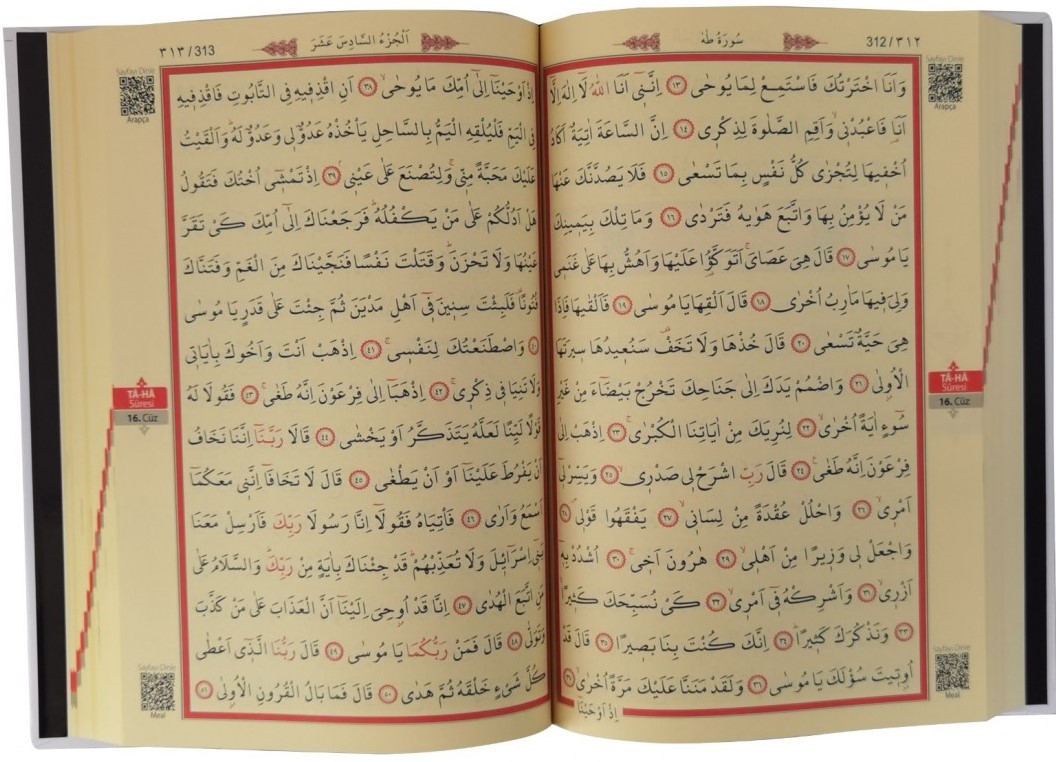 سُورَةُ طٰهٰ
312/٣١٢
وَاَنَا اخْتَرْتُكَ فَاسْتَمِعْ لِمَا يُوحٰى ﴿١٣﴾ اِنَّنٖٓي اَنَا اللّٰهُ لَٓا اِلٰهَ اِلَّٓا
اَنَا فَاعْبُدْنٖيۙ وَاَقِمِ الصَّلٰوةَ لِذِكْرٖي ﴿١٤﴾ اِنَّ السَّاعَةَ اٰتِيَةٌ اَكَادُ
اُخْفٖيهَا لِتُجْزٰى كُلُّ نَفْسٍ بِمَا تَسْعٰى ﴿١٥﴾ فَلَا يَصُدَّنَّكَ عَنْهَا
مَنْ لَا يُؤْمِنُ بِهَا وَاتَّبَعَ هَوٰيهُ فَتَرْدٰى ﴿١٦﴾ وَمَا تِلْكَ بِيَمٖينِكَ
يَا مُوسٰى ﴿١٧﴾ قَالَ هِيَ عَصَايَۚ اَتَوَكَّؤُ۬ا عَلَيْهَا وَاَهُشُّ بِهَا عَلٰى غَنَمٖي
وَلِيَ فٖيهَا مَاٰرِبُ اُخْرٰى ﴿١٨﴾ قَالَ اَلْقِهَا يَا مُوسٰى ﴿١٩﴾ فَاَلْقٰيهَا فَاِذَا
هِيَ حَيَّةٌ تَسْعٰى ﴿٢٠﴾ قَالَ خُذْهَا وَلَا تَخَفْ۠ سَنُعٖيدُهَا سٖيرَتَهَا
الْاُو۫لٰى ﴿٢١﴾ وَاضْمُمْ يَدَكَ اِلٰى جَنَاحِكَ تَخْرُجْ بَيْضَٓاءَ مِنْ غَيْرِ
سُٓوءٍ اٰيَةً اُخْرٰىۙ ﴿٢٢﴾ لِنُرِيَكَ مِنْ اٰيَاتِنَا الْكُبْرٰىۚ ﴿٢٣﴾ اِذْهَبْ اِلٰى
فِرْعَوْنَ اِنَّهُ طَغٰى۟ ﴿٢٤﴾ قَالَ رَبِّ اشْرَحْ لٖي صَدْرٖيۙ ﴿٢٥﴾ وَيَسِّرْ لٖٓي
اَمْرٖيۙ ﴿٢٦﴾ وَاحْلُلْ عُقْدَةً مِنْ لِسَانٖيۙ ﴿٢٧﴾ يَفْقَهُوا قَوْلٖيۖ ﴿٢٨﴾
وَاجْعَلْ لٖي وَزٖيرًا مِنْ اَهْلٖيۙ ﴿٢٩﴾ هٰرُونَ اَخٖيۚ ﴿٣٠﴾ اُشْدُدْ بِهٖٓ
اَزْرٖيۙ ﴿٣١﴾ وَاَشْرِكْهُ فٖٓي اَمْرٖيۙ ﴿٣٢﴾ كَيْ نُسَبِّحَكَ كَثٖيرًاۙ
﴿٣٣﴾ وَنَذْكُرَكَ كَثٖيرًاۜ ﴿٣٤﴾ اِنَّكَ كُنْتَ بِنَا بَصٖيرًا ﴿٣٥﴾ قَالَ قَدْ
اُو۫تٖيتَ سُؤْلَكَ يَا مُوسٰى ﴿٣٦﴾ وَلَقَدْ مَنَنَّا عَلَيْكَ مَرَّةً اُخْرٰىۙ ﴿٣٧﴾
اِذْ اَوْحَيْنَٓا
Sayfayı Dinle
Arapça
TÂ-HÂ
Sûresi
16. Cüz
Sayfayı Dinle
Meal
٣١٣/313
اَلْجُزْءُ السَّادِسَ عَشَرَ
اِذْ اَوْحَيْنَٓا اِلٰٓى اُمِّكَ مَا يُوحٰىۙ ﴿٣٨﴾ اَنِ اقْذِفٖيهِ فِي التَّابُوتِ فَاقْذِفٖيهِ
فِي الْيَمِّ فَلْيُلْقِهِ الْيَمُّ بِالسَّاحِلِ يَأْخُذْهُ عَدُوٌّ لٖي وَعَدُوٌّ لَهُۜ وَاَلْقَيْتُ
عَلَيْكَ مَحَبَّةً مِنّٖيۚ وَلِتُصْنَعَ عَلٰى عَيْنٖيۢ ﴿٣٩﴾ اِذْ تَمْشٖٓي اُخْتُكَ فَتَقُولُ
هَلْ اَدُلُّكُمْ عَلٰى مَنْ يَكْفُلُهُۜ فَرَجَعْنَاكَ اِلٰٓى اُمِّكَ كَيْ تَقَرَّ
عَيْنُهَا وَلَا تَحْزَنَۜ وَقَتَلْتَ نَفْسًا فَنَجَّيْنَاكَ مِنَ الْغَمِّ وَفَتَنَّاكَ
فُتُونًا۠ فَلَبِثْتَ سِنٖينَ فٖٓي اَهْلِ مَدْيَنَ ثُمَّ جِئْتَ عَلٰى قَدَرٍ يَا مُوسٰى
﴿٤٠﴾ وَاصْطَنَعْتُكَ لِنَفْسٖيۚ ﴿٤١﴾ اِذْهَبْ اَنْتَ وَاَخُوكَ بِاٰيَاتٖي
وَلَا تَنِيَا فٖي ذِكْرٖيۚ ﴿٤٢﴾ اِذْهَبَٓا اِلٰى فِرْعَوْنَ اِنَّهُ طَغٰىۚ ﴿٤٣﴾ فَقُولَا لَهُ
قَوْلًا لَيِّنًا لَعَلَّهُ يَتَذَكَّرُ اَوْ يَخْشٰى ﴿٤٤﴾ قَالَا رَبَّنَٓا اِنَّنَا نَخَافُ
اَنْ يَفْرُطَ عَلَيْنَٓا اَوْ اَنْ يَطْغٰى ﴿٤٥﴾ قَالَ لَا تَخَافَٓا اِنَّنٖي مَعَكُمَٓا
اَسْمَعُ وَاَرٰى ﴿٤٦﴾ فَأْتِيَاهُ فَقُولَٓا اِنَّا رَسُولَا رَبِّكَ فَاَرْسِلْ مَعَنَا
بَنٖٓي اِسْرَٓائٖلَ وَلَا تُعَذِّبْهُمْۜ قَدْ جِئْنَاكَ بِاٰيَةٍ مِنْ رَبِّكَۜ وَالسَّلَامُ عَلٰى
مَنِ اتَّبَعَ الْهُدٰى ﴿٤٧﴾ اِنَّا قَدْ اُو۫حِيَ اِلَيْنَٓا اَنَّ الْعَذَابَ عَلٰى مَنْ كَذَّبَ
وَتَوَلّٰى ﴿٤٨﴾ قَالَ فَمَنْ رَبُّكُمَا يَا مُوسٰى ﴿٤٩﴾ قَالَ رَبُّنَا الَّذٖٓي اَعْطٰى
كُلَّ شَيْءٍ خَلْقَهُ ثُمَّ هَدٰى ﴿٥٠﴾ قَالَ فَمَا بَالُ الْقُرُونِ الْاُو۫لٰى ﴿٥١﴾
Sayfayı Dinle
Arapça
TÂ-HÂ
Sûresi
16. Cüz
Sayfayı Dinle
Meal